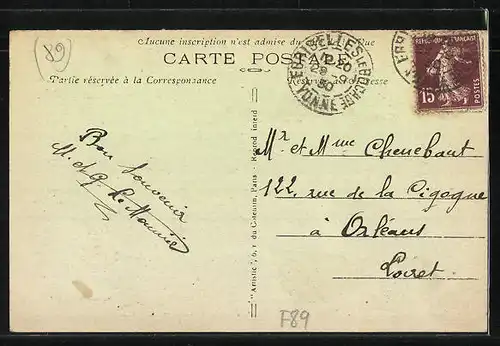 89
Aucune inscription n'est admise du
CARTE POSTALE
Partie réservée à la Correspondance
15
RÉPUBLIQUE FRANÇAISE
POSTES
YONNE
30
Bon souvenir
M. et G. Le Mounier
Mr et Mme Chenebaut
122, rue de la Cigogne
à Orléans
Loiret
"Artistic", 6, r. du Cotentin, Paris - Reprod. interd.
F89